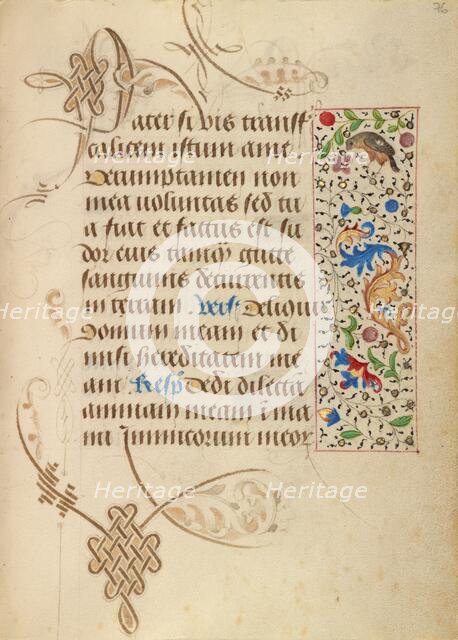 76
Pater si vis transf
calicem istum a me
Verumptamen non
mea voluntas sed tu
a fiat et factus est su
dor eius tanq̄ gutte
sanguinis decurrentis
in terram Vers̄ Reliqui
domum meam et di
misi hereditatem me
am Resp̄ Dedi dilectā
animam meam in ma
nu Inimicorum meor
Heritage
Heritage
Heritage
Heritage
Heritage
Heritage
Heritage